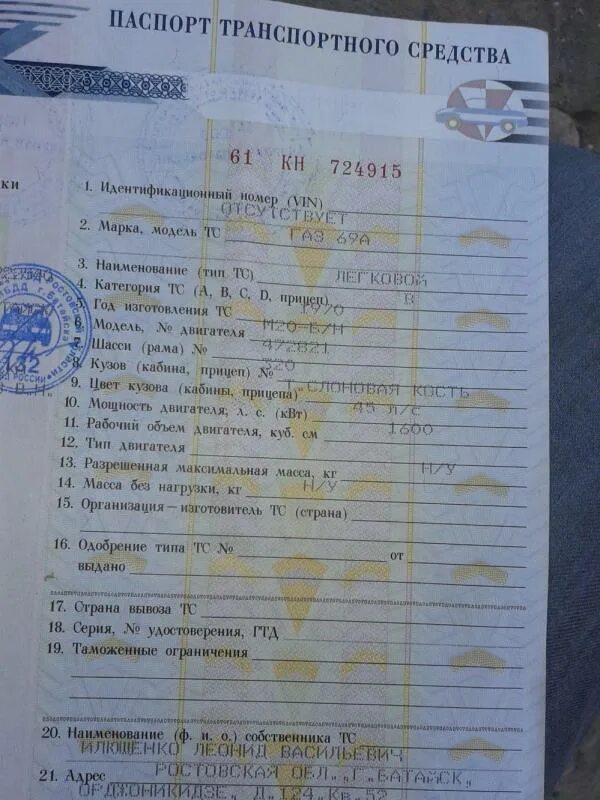 ПАСПОРТ ТРАНСПОРТНОГО СРЕДСТВА
61 КН 724915
1. Идентификационный номер (VIN)
ОТСУТСТВУЕТ
2. Марка, модель ТС ГАЗ 69А
3. Наименование (тип ТС) ЛЕГКОВОЙ
4. Категория ТС (А, В, С, D, прицеп) В
5. Год изготовления ТС 1970
6. Модель, № двигателя М20-Б/Н
7. Шасси (рама) № 472821
8. Кузов (кабина, прицеп) № 320
9. Цвет кузова (кабины, прицепа) Т.СЛОНОВАЯ КОСТЬ
10. Мощность двигателя, л. с. (кВт) 45 Л/С
11. Рабочий объем двигателя, куб. см 1600
12. Тип двигателя
13. Разрешенная максимальная масса, кг Н/У
14. Масса без нагрузки, кг Н/У
15. Организация—изготовитель ТС (страна)
16. Одобрение типа ТС № от
выдано
17. Страна вывоза ТС
18. Серия, № удостоверения, ГТД
19. Таможенные ограничения
20. Наименование (ф. и. о.) собственника ТС
ИЛЮШЕНКО ЛЕОНИД ВАСИЛЬЕВИЧ
21. Адрес РОСТОВСКАЯ ОБЛ.,Г.БАТАЙСК,
ОРДЖОНИКИДЗЕ, Д.124,КВ.52